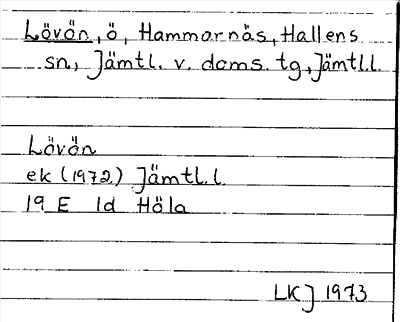 Lövön, ö, Hammarnäs, Hallens
sn, Jämtl. v. doms. tg, Jämtl.l.
Lövön
ek (1972) Jämtl.l.
19 E 1d Höla
LKJ 1973